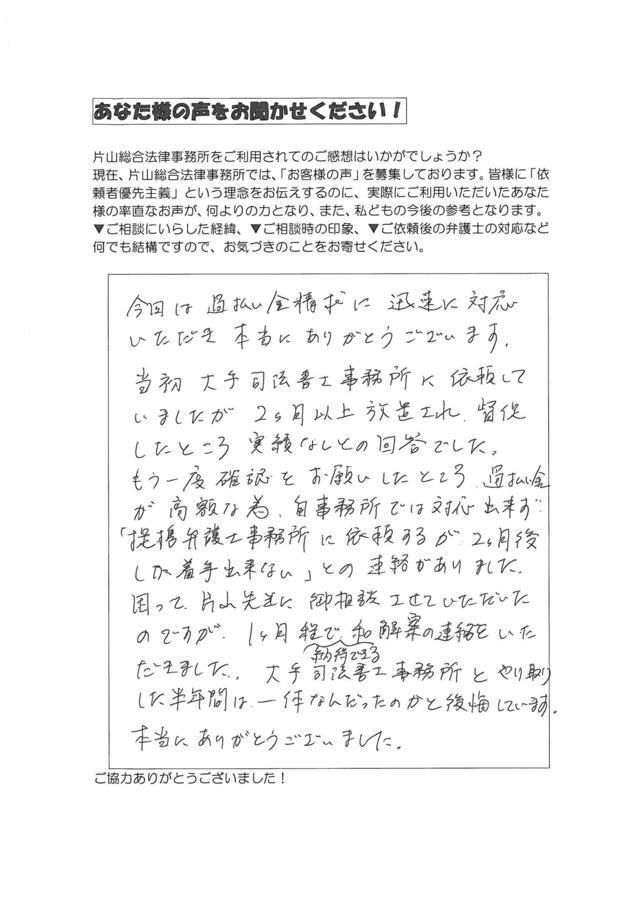 あなた様の声をお聞かせください！
片山総合法律事務所をご利用されてのご感想はいかがでしょうか？
現在、片山総合法律事務所では、「お客様の声」を募集しております。皆様に「依
頼者優先主義」という理念をお伝えするのに、実際にご利用いただいたあなた
様の率直なお声が、何よりの力となり、また、私どもの今後の参考となります。
▼ご相談にいらした経緯、▼ご相談時の印象、▼ご依頼後の弁護士の対応など
何でも結構ですので、お気づきのことをお寄せください。
今回は過払い金精求に迅速に対応
いただき本当にありがとうございます。
当初大手司法書士事務所に依頼して
いましたが2ヶ月以上放置され、督促
したところ実績なしとの回答でした。
もう一度確認をお願いしたところ、過払い金
が高額な為、自事務所では対応出来ず
「提携弁護士事務所に依頼するが、2ヶ月後
しか着手出来ない」との連絡がありました。
困って、片山先生に御相談させていただいた
のですが、1ヶ月程で、和解案の連絡をいた
納得できる
だきました。大手司法書士事務所とやり取り
した半年間は、一体なんだったのかと後悔しています。
本当にありがとうございました。
ご協力ありがとうございました！